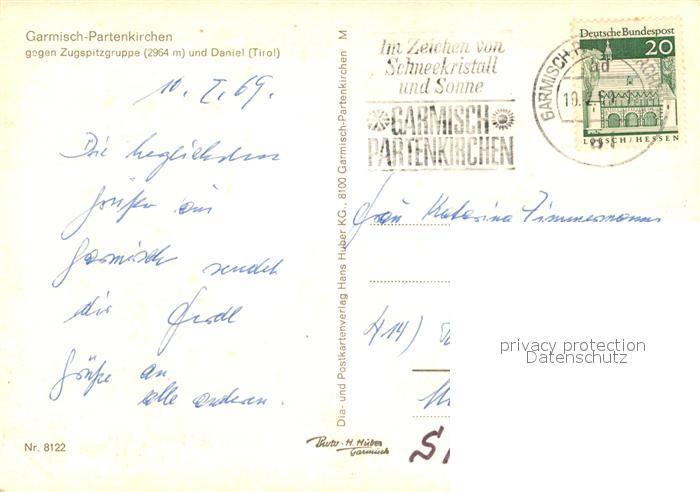 Garmisch-Partenkirchen
gegen Zugspitzgruppe (2964 m) und Daniel (Tirol)
10. I. 69.
Die herzlichsten
Grüße aus
Garmisch sendet
dir Gredl
Grüße an
alle anderen.
Nr. 8122
Dia- und Postkartenverlag Hans Huber KG., 8100 Garmisch-Partenkirchen M
Photo-H. Huber
Garmisch
Im Zeichen von
Schneekristall
und Sonne
GARMISCH
PARTENKIRCHEN
GARMISCH-P
10.2.69
Deutsche Bundespost
20
LORSCH/HESSEN
Frau Katarina Zimmermann
414)
privacy protection
Datenschutz